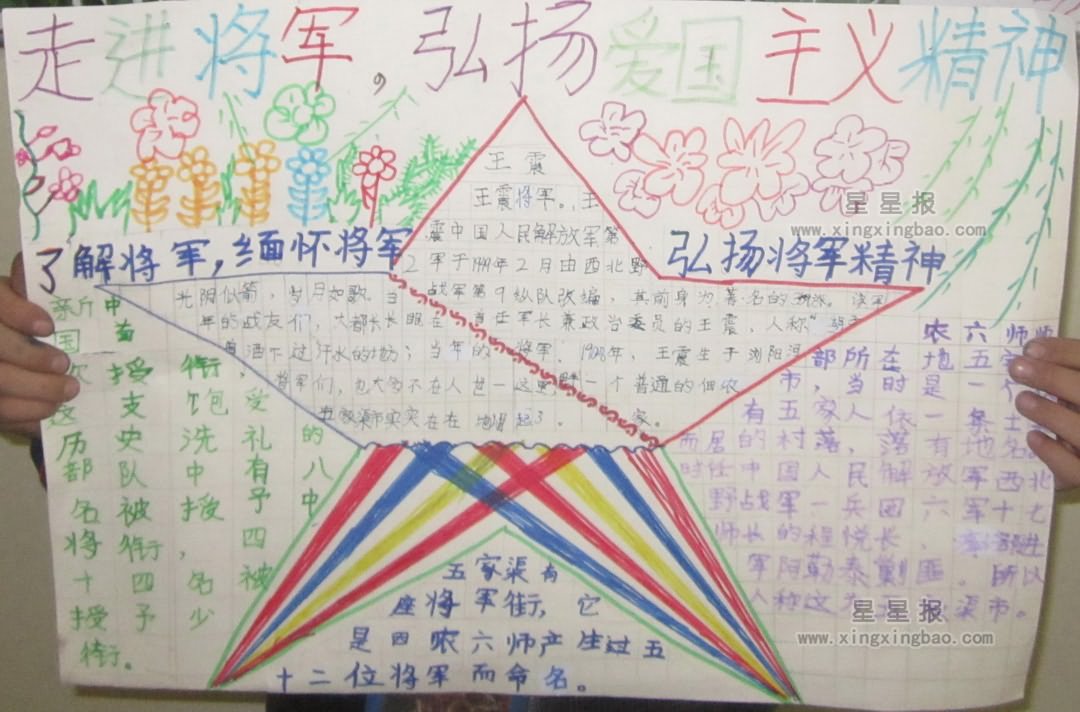 走进将军,弘扬爱国主义精神
星星报
www.xingxingbao.com
了解将军,缅怀将军
弘扬将军精神
王震
王震将军。王
震中国人民解放军第
2军于1949年2月由西北野
战军第9纵队改编,其前身为著名的
首任军长兼政治委员的王震,人称"
将军。1908年,王震生于浏阳
一个普通的佃农
家。
光阴似箭,岁月如歌。当
年的战友们,大都长眠在
洒下过汗水的地方;当年的
将军们,也大多不在人世。这里
五家渠市实实在在地崛起了。
亲听中
国
次授衔,
这支饱受
历史洗礼的
部队中有八
名被授予中
将衔,四
十四名被
授予少
衔。
五家渠有
座将军街,它
是四农六师产生过五
十二位将军而命名。
农六师师
部所在地五家
市,当时是一个
有五家人依一条
而居的村落,落有地名
时任中国人民解放军西北
野战军一兵团六军十七
师长的程悦长、
军阿勒泰剿匪。所以
人称这为五家渠市。
星星报
www.xingxingbao.com